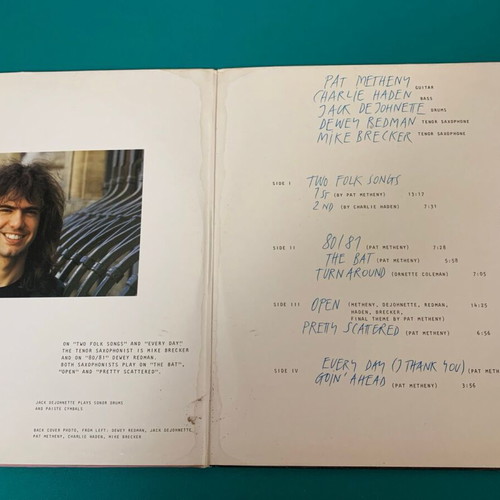 ON "TWO FOLK SONGS" AND "EVERY DAY"
THE TENOR SAXOPHONIST IS MIKE BRECKER
AND ON "80/81" DEWEY REDMAN.
BOTH SAXOPHONISTS PLAY ON "THE BAT",
"OPEN" AND "PRETTY SCATTERED".
JACK DEJOHNETTE PLAYS SONOR DRUMS
AND PAISTE CYMBALS
BACK COVER PHOTO, FROM LEFT: DEWEY REDMAN, JACK DEJOHNETTE,
PAT METHENY, CHARLIE HADEN, MIKE BRECKER
PAT METHENY GUITAR
CHARLIE HADEN BASS
JACK DEJOHNETTE DRUMS
DEWEY REDMAN TENOR SAXOPHONE
MIKE BRECKER TENOR SAXOPHONE
SIDE I TWO FOLK SONGS
1ST (BY PAT METHENY) 13:17
2ND (BY CHARLIE HADEN) 7:31
SIDE II 80/81 (PAT METHENY) 7:28
THE BAT (PAT METHENY) 5:58
TURNAROUND (ORNETTE COLEMAN) 7:05
SIDE III OPEN (METHENY, DEJOHNETTE, REDMAN, 14:25
HADEN, BRECKER,
FINAL THEME BY PAT METHENY)
PRETTY SCATTERED (PAT METHENY) 6:56
SIDE IV EVERY DAY (I THANK YOU) (PAT METH
GOIN' AHEAD (PAT METHENY) 3:56